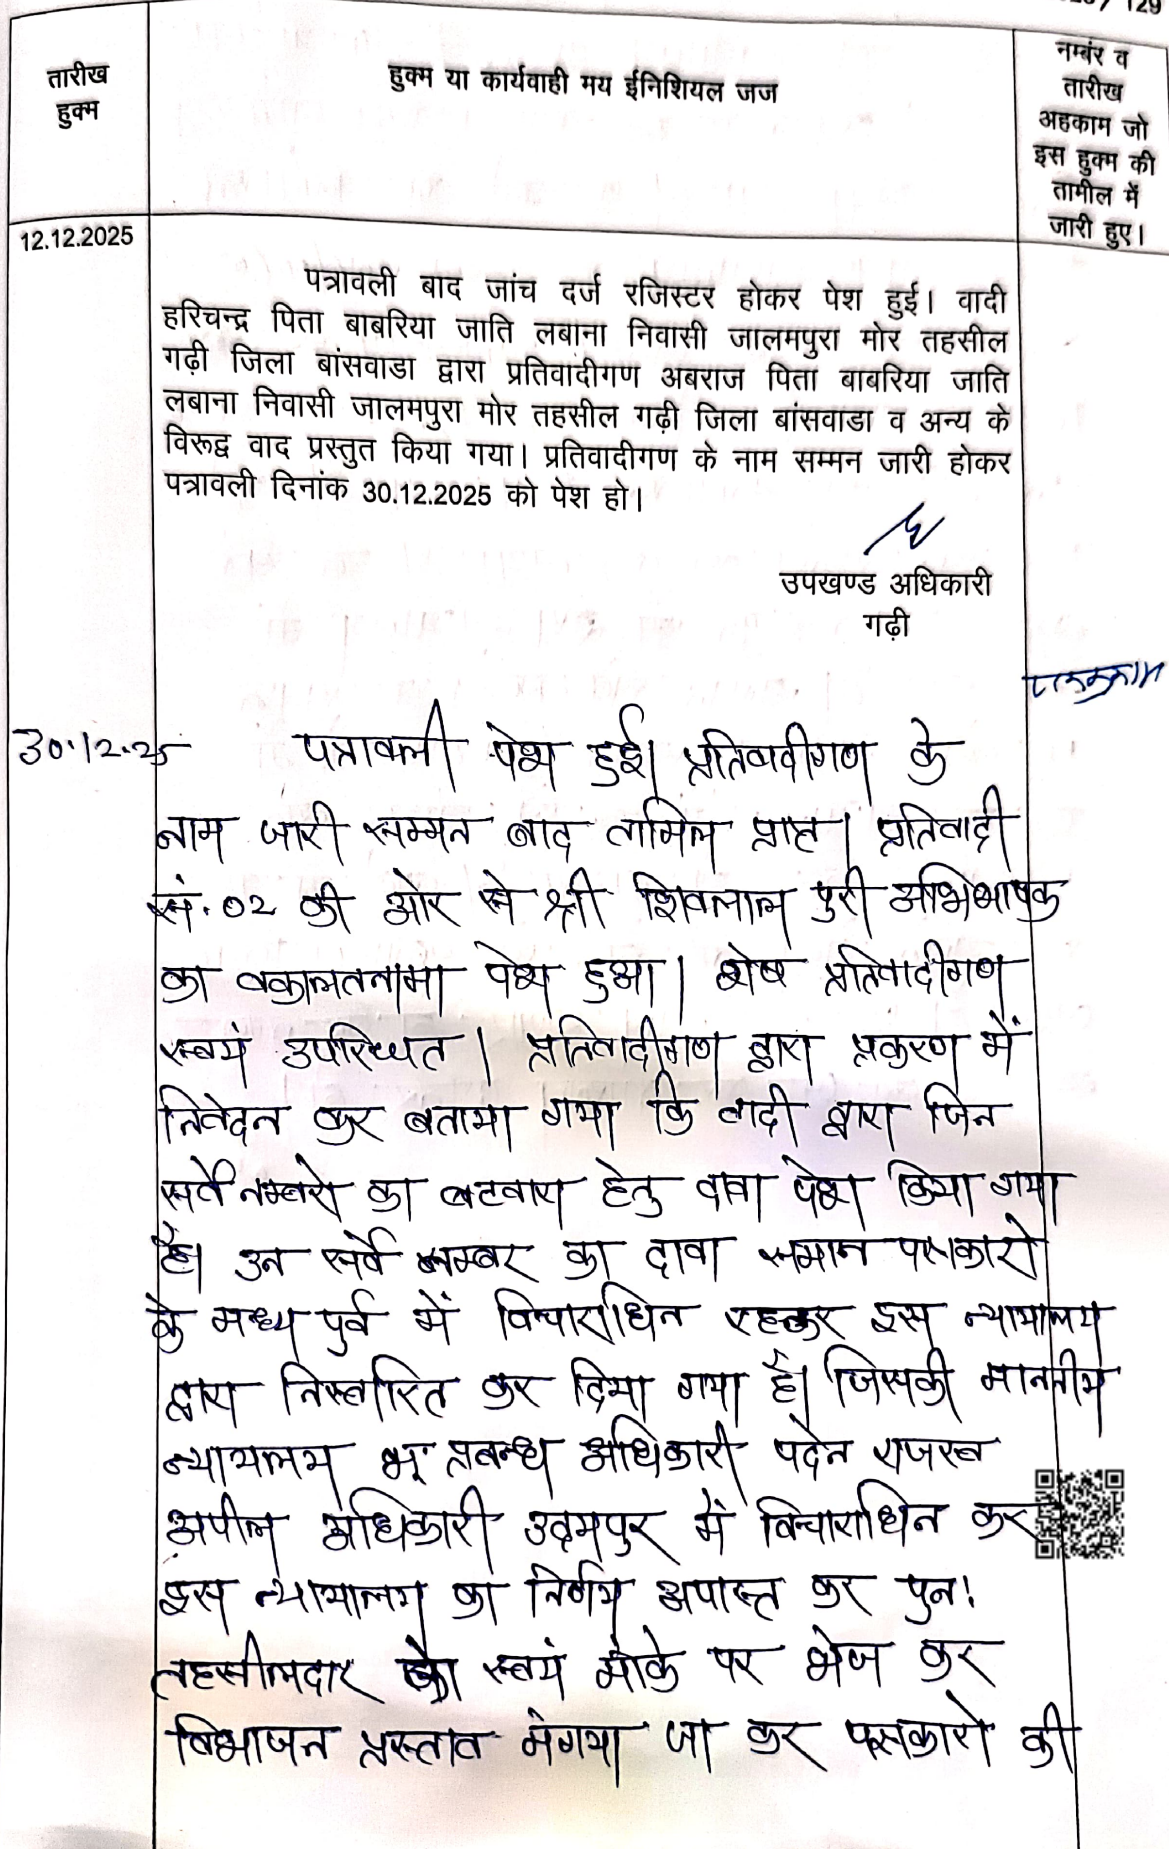 129
तारीख
हुक्म
हुक्म या कार्यवाही मय ईनिशियल जज
नम्बंर व
तारीख
अहकाम जो
इस हुक्म की
तामील में
जारी हुए।
12.12.2025
पत्रावली बाद जांच दर्ज रजिस्टर होकर पेश हुई। वादी
हरिचन्द्र पिता बाबरिया जाति लबाना निवासी जालमपुरा मोर तहसील
गढ़ी जिला बांसवाडा द्वारा प्रतिवादीगण अबराज पिता बाबरिया जाति
लबाना निवासी जालमपुरा मोर तहसील गढ़ी जिला बांसवाडा व अन्य के
विरूद्व वाद प्रस्तुत किया गया। प्रतिवादीगण के नाम सम्मन जारी होकर
पत्रावली दिनांक 30.12.2025 को पेश हो।
उपखण्ड अधिकारी
गढ़ी
30.12.25 पत्रावली पेश हुई। प्रतिवादीगण के
नाम जारी सम्मन बाद तामिल प्राप्त। प्रतिवादी
सं. 02 की ओर से श्री शिवलाल पुरी अभिभाषक
का वकालतनामा पेश हुआ। शेष प्रतिवादीगण
स्वयं उपस्थित। प्रतिवादीगण द्वारा प्रकरण में
निवेदन कर बताया गया कि वादी द्वारा जिन
सर्वे नम्बरो का बटवारा हेतु दावा पेश किया गया
है। उन सर्वे नम्बर का दावा समान पक्षकारो
के मध्य पुर्व में विचाराधिन रहकर इस न्यायालय
द्वारा निस्तारित कर दिया गया है। जिसकी माननीय
न्यायालय भू प्रबन्ध अधिकारी पदेन राजस्व
अपील अधिकारी उदयपुर में विचाराधिन कर
इस न्यायालय का निर्णय अपास्त कर पुन:
तहसीलदार को स्वयं मोके पर भेज कर
विभाजन प्रस्ताव मंगया जा कर पक्षकारो की